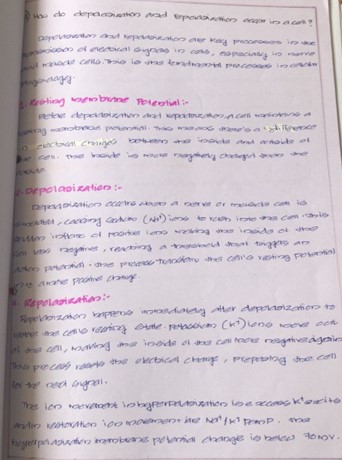 How do depolarization and repolarization occur in a cell?
Depolarization and repolarization are key processes in the
transmission of electrical signals in cells, especially in nerve
and muscle cells. This is the fundamental processes in cellular
physiology.
1. Resting membrane Potential:-
Before depolarization and repolarization, a cell maintains a
resting membrane potential. This means there's a difference
in electrical charges between the inside and outside of
the cell. The inside is more negatively charged than the
outside.
2. Depolarization:-
Depolarization occurs when a nerve or muscle cell is
stimulated, causing sodium (Na⁺) ions to rush into the cell. This
sudden influx of positive ions making the inside of the
cell less negative, reaching a threshold that triggers an
action potential. This process transform the cell's resting potential
to a more positive charge.
Repolarization:-
Repolarization happens immediately after depolarization to
restore the cell's resting state. Potassium (K⁺) ions move out
of the cell, making the inside of the cell more negative again
This process resets the electrical charge, preparing the cell
for the next signal.
The ion movement in hyperpolarization is excess K⁺ exits
and in restoration ion movement is Na⁺/K⁺ pump. The
hyperpolarization membrane potential change is below 70mv.